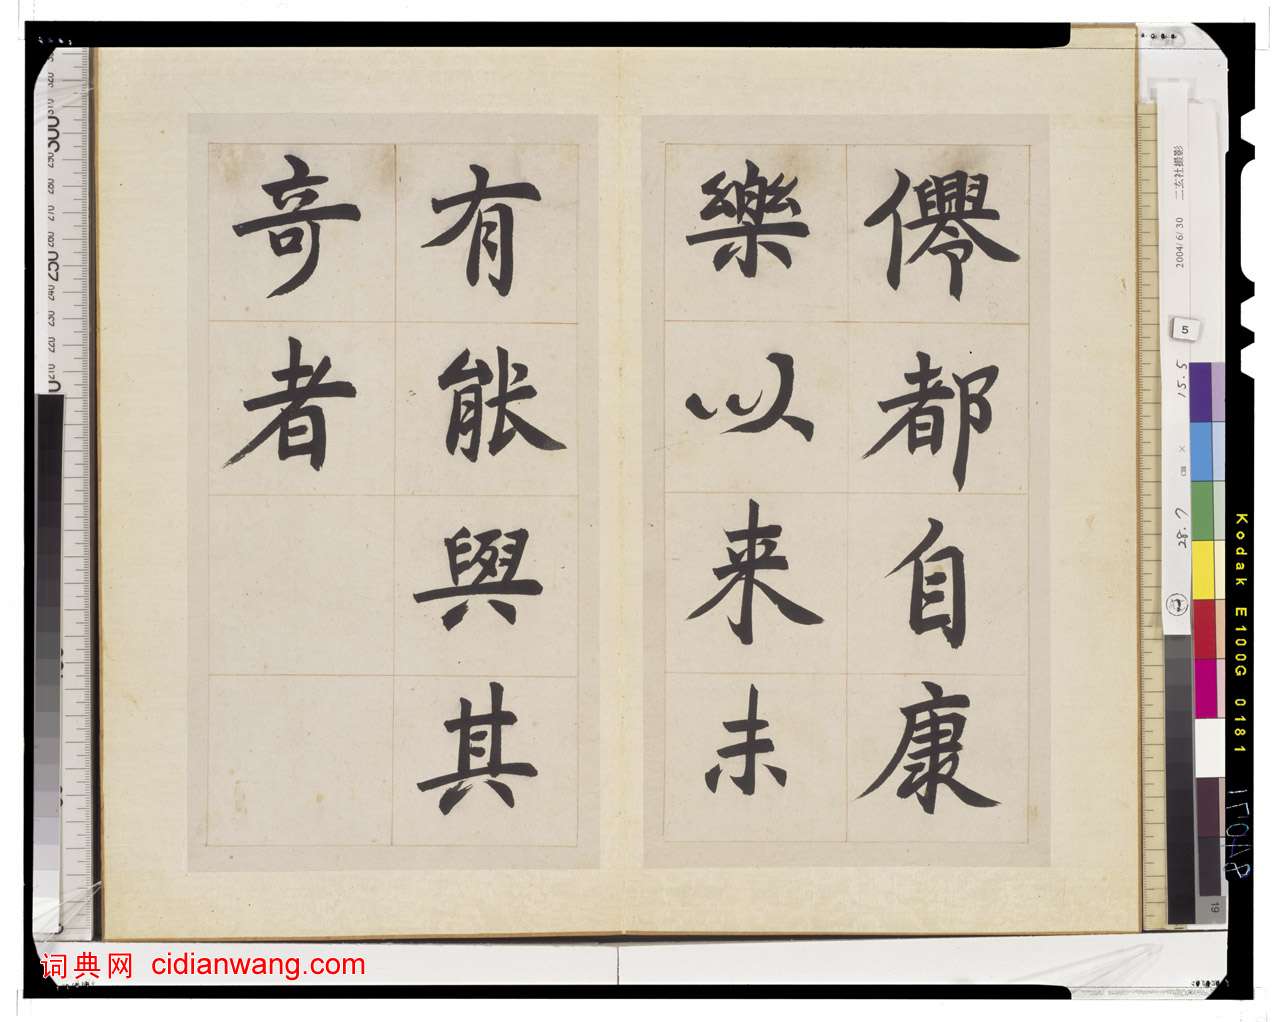 儚都自康
樂以来未
有能與其
奇者
二玄社撮影
2004/6/30
5
15.5
cm ×
28.7
Kodak E100G 0181
19
词典网 cidianwang.com